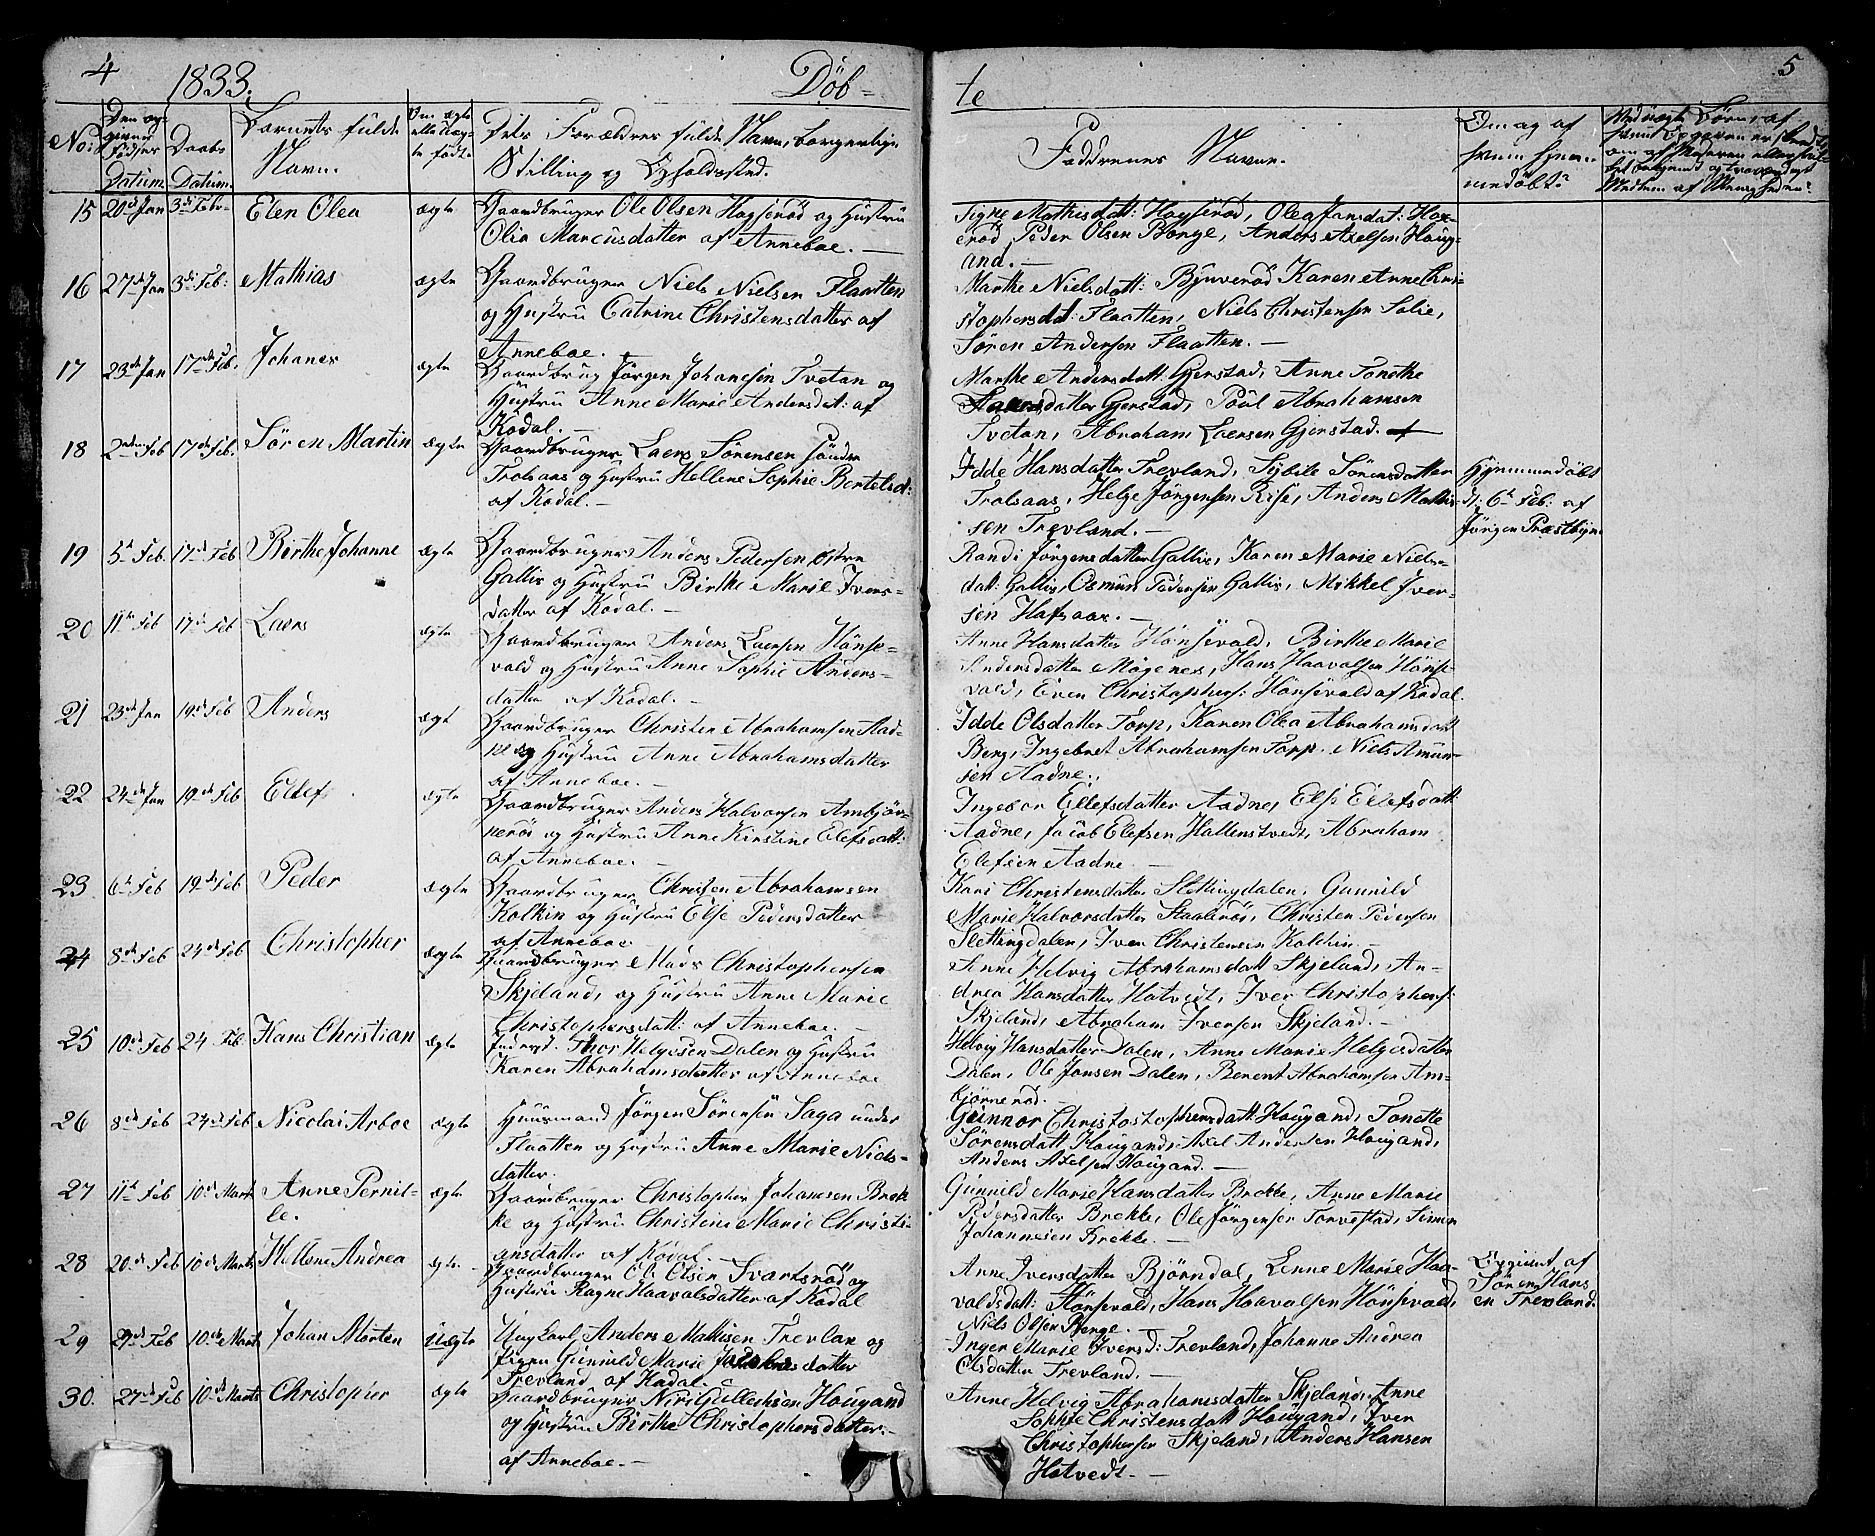 4 1833. Døb- te 5
No: Den op-
givne
Fødsels
Datum. Daabs
Datum. Barnets fulde
Navn. Om ægte
eller Uæg-
te født. Dets Forældres fulde Navn, borgerlige
Stilling og Opholdssted. Faddrenes Navne. Om og af
hvem hjem-
medøbt?
15 20de Jan 3de Febr. Elen Olea ægte Gaardbruger Ole Olsen Hogserød og Hustru
Olia Marcusdatter af Anneboe. —
Signe Mathisdatt: Hogserød, Olea Jansdat: Hox-
erød, Peder Olsen Bonge, Anders Axelsen Houg-
and. —
16 27de Jan 3de Feb: Mathias ægte Gaardbruger Niels Nielsen Flaatten
og Hustru Catrine Christensdatter af
Anneboe. —
Marthe Nielsdatt: Karen Anne Chri-
stophersdat: Flaatten, Niels Christensen Solie,
Søren Andersen Flaatten. —
17 23de Jan 17de Feb. Johanes ægte Gaardbrug Jørgen Johanesen Tvetan og
Hustru Anne Marie Andersdat: af
Kodal. —
Marthe Andersdatt: Gjerstad, Anne Tonethe
datter Gjerstad, Poul Abrahamsen
Tvetan, Abraham Laersen Gjerstad.
18 2den Feb 17de Feb. Søren Martin ægte Gaardbruger Laers Sørensen søndre
Trolsaas og Hustru Hellene Sophie Bertelsd:
af Kodal. —
Idde Hansdatter Trevland, Sybile Sørensdatter
Trolsaas, Helge Jørgensen Rise, Anders Mathis-
sen Trevland. —
Hjemmedøbt
d: 6te Feb: af
Jørgen Præstbyen
19 5te Feb. 17de Feb Birthe Johanne ægte Gaardbruger Anders Pedersen østre
Gallis og Hustru Birthe Marie Ivers-
datter af Kodal. —
Randi Jørgensdatter Gallis, Karen Marie Niels-
datt: Gallis, Osmun Pedersen Gallis, Mikkel Iver-
sen Hafsaas. —
20 11te Feb 17de Feb Laers ægte Gaardbruger Anders Laersen Hønse-
vald og Hustru Anne Sophie Anders-
datter af Kodal. —
Anne Hansdatter Hønsevald, Birthe Marie
Andersdatter Møgenes, Hans Haavalsen Hønse-
vald, Even Christophers: Hønsevald af Kodal.
21 23de Jan 19de Feb Anders ægt Gaardbruger Christen Abrahamsen Aad-
ne og Hustru Anne Abrahamsdatter
af Anneboe. —
Idde Olsdatter Torp, Karen Olea Abrahamsdatt
Berg, Ingebret Abrahamsen Torp. Niels Amun-
sen Aadne.
22 24de Jan 19de Feb Ellef ægte Gaardbruger Anders Halvorsen Ambjør-
nerø og Hustru Anne Kirstine Elefsdatt:
af Anneboe. —
Ingebor Ellefsdatter Aadne, Elsi Ellefsdatt
Aadne, Jacob Elefsen Hallenstvedt, Abraham
Elefsen Aadne. —
23 6te Feb 19de Feb Peder ægte Gaardbruger Christen Abrahamsen
Kolkin og Hustru Else Pedersdatter
af Anneboe. —
Kari Christensdatter Slettingdalen, Gunnild
Marie Halvorsdatter Staalerø, Christen Pedersen
Slettingdalen, Iver Christensen Kolkin. —
24 8de Feb 24de Feb Christopher ægte Gaardbruger Mads Christophersen
Skjeland, og Hustru Anne Marie
Christophersdatt: af Anneboe. —
Anne Helvig Abrahamsdatt Skjeland, An-
drea Hansdatter Hotvedt, Iver Christophers:
Skjeland, Abraham Iversen Skjeland. —
25 10de Feb 24 Feb. Hans Christian ægte Inderst. Thor Helgesen Dalen og Hustru
Karen Abrahamsdatter af Anneboe
Helvig Hansdatter Dalen, Anne Marie Helgesdatter
Dalen, Ole Jansen Dalen, Berent Abrahamsen Am-
bjørnerød. —
26 8de Feb 24de Feb Nicolai Arboe ægte Huusmand Jørgen Sørensen Saga under
Flaatten og Hustru Anne Marie Niels-
datter.
Gunnor Christostophersdatt Hougand, Tonette
Sørensdatt Hougand, Axel Andersen Hougand,
Anders Axelsen Hougand. —
27 11te Feb 10de Mart Anne Pernil-
le. ægte Gaardbruger Christopher Johanesen Brek
ke og Hustru Christine Marie Christi-
ansdatter af Kodal. —
Gunnild Marie Hansdatter Brekke, Anne Marie
Pedersdatter Brekke, Ole Jørgensen Torvestad, Simon
Johannesen Brekke. —
28 20de Feb 10de Marts Hellene Andrea ægte Gaardbruger Ole Olsen Svartsrød og
Hustru Ragne Haavalsdatter af Kodal
Anne Iversdatter Bjørndal, Lenne Marie Haa-
valdsdatt: Hønsevald, Hans Haavalsen Hønsevald,
Niels Olsen Benge. —
Opgivet af
Søren Hans
en Trevland.
29 29de Feb 10de Marts Johan Morten Uægte Ungkarl, Anders Mathisen Trevlan og
Pigen Gunnild Marie Jacobsdatter
Trevland af Kodal. —
Inger Marie Iversd: Trevland, Johanne Andrea
Olsdatter Trevland. —
30. 27de Feb 10de Marts Christopher ægte Gaardbruger Hougand
og Hustru Birthe Christophersdatter. —
af Anneboe. —
Anne Helvig Abrahamsdatter Skjeland, Anne
Sophie Christensdatt Hougand, Iver
Christophersen Skjeland, Anders Hansen
Hotvedt. —